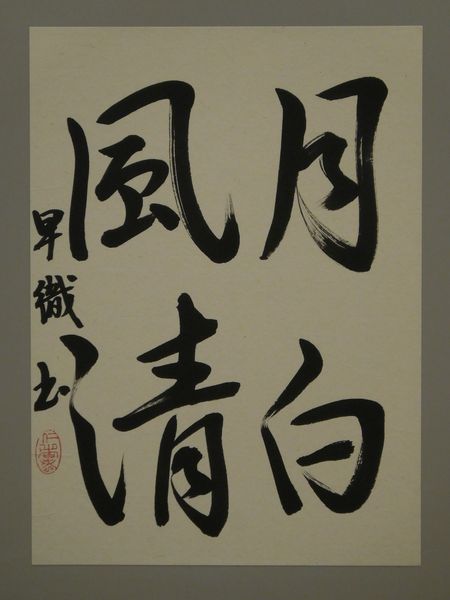 月白
風清
早織书